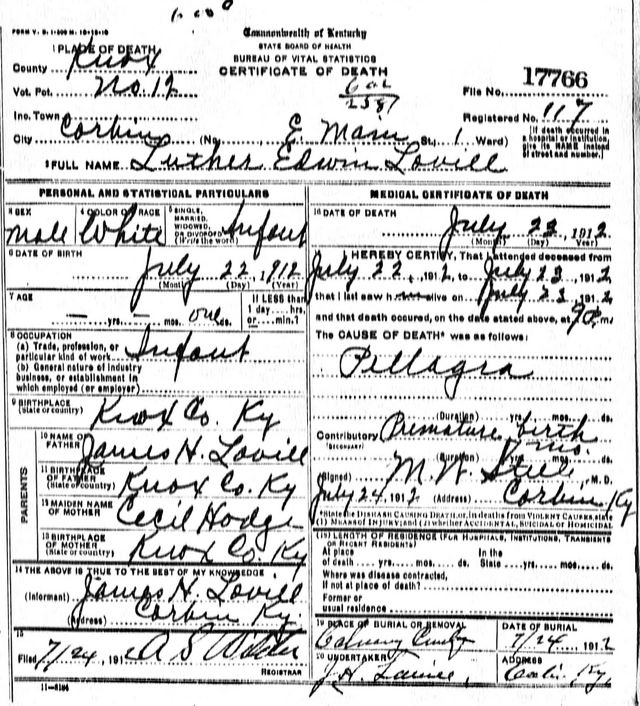 FORM V. S. 1-500 M. 10-10-10
Commonwealth of Kentucky
STATE BOARD OF HEALTH
BUREAU OF VITAL STATISTICS
CERTIFICATE OF DEATH
1 PLACE OF DEATH
County Knox
Vot. Pct. No. 12
File No. 17766
Registered No. 117
Inc. Town
City Corbin (No. E. Main St., 1 Ward)
(If death occurred in a hospital or institution, give its NAME instead of street and number.)
2 FULL NAME Luther Edwin Lovill
PERSONAL AND STATISTICAL PARTICULARS
3 SEX Male
4 COLOR OR RACE White
5 SINGLE, MARRIED, WIDOWED, OR DIVORCED (Write the word) Infant
6 DATE OF BIRTH July 22, 1912
(Month) (Day) (Year)
7 AGE — yrs. — mos. one ds.
If LESS than 1 day....hrs. or....min.?
8 OCCUPATION
(a) Trade, profession, or particular kind of work Infant
(b) General nature of industry business, or establishment in which employed (or employer)
9 BIRTHPLACE (State or country) Knox Co. Ky
PARENTS
10 NAME OF FATHER James H. Lovill
11 BIRTHPLACE OF FATHER (State or country) Knox Co. Ky
12 MAIDEN NAME OF MOTHER Cecil Hodge
13 BIRTHPLACE OF MOTHER (State or country) Knox Co. Ky
14 THE ABOVE IS TRUE TO THE BEST OF MY KNOWLEDGE
(Informant) James H. Lovill
(Address) Corbin Ky.
15
Filed 7/24, 1912 A S Wilder
REGISTRAR
11-8184
MEDICAL CERTIFICATE OF DEATH
16 DATE OF DEATH July 23 1912
(Month) (Day) (Year)
I HEREBY CERTIFY, That I attended deceased from
July 22, 1912, to July 23 1912
that I last saw him alive on July 23 1912
and that death occured, on the date stated above, at 9 P. m.
The CAUSE OF DEATH* was as follows:
Pellagra
(Duration) yrs. mos. ds.
Contributory (SECONDARY) Premature birth
(Duration) yrs. mo. ds.
(Signed) M. W. , M. D.
July 24 1912 (Address) Corbin Ky
*State the DISEASE CAUSING DEATH, or, in deaths from VIOLENT CAUSES state
(1) MEANS OF INJURY; and (2) whether ACCIDENTAL, SUICIDAL or HOMICIDAL
(19) LENGTH OF RESIDENCE (FOR HOSPITALS, INSTITUTIONS, TRANSIENTS OR RECENT RESIDENTS)
At place of death yrs. mos. ds. In the State yrs. mos. ds.
Where was disease contracted, if not at place of death?
Former or usual residence
19 PLACE OF BURIAL OR REMOVAL Calvary
DATE OF BURIAL 7/24 1912
20 UNDERTAKER J. H.
ADDRESS Ky.